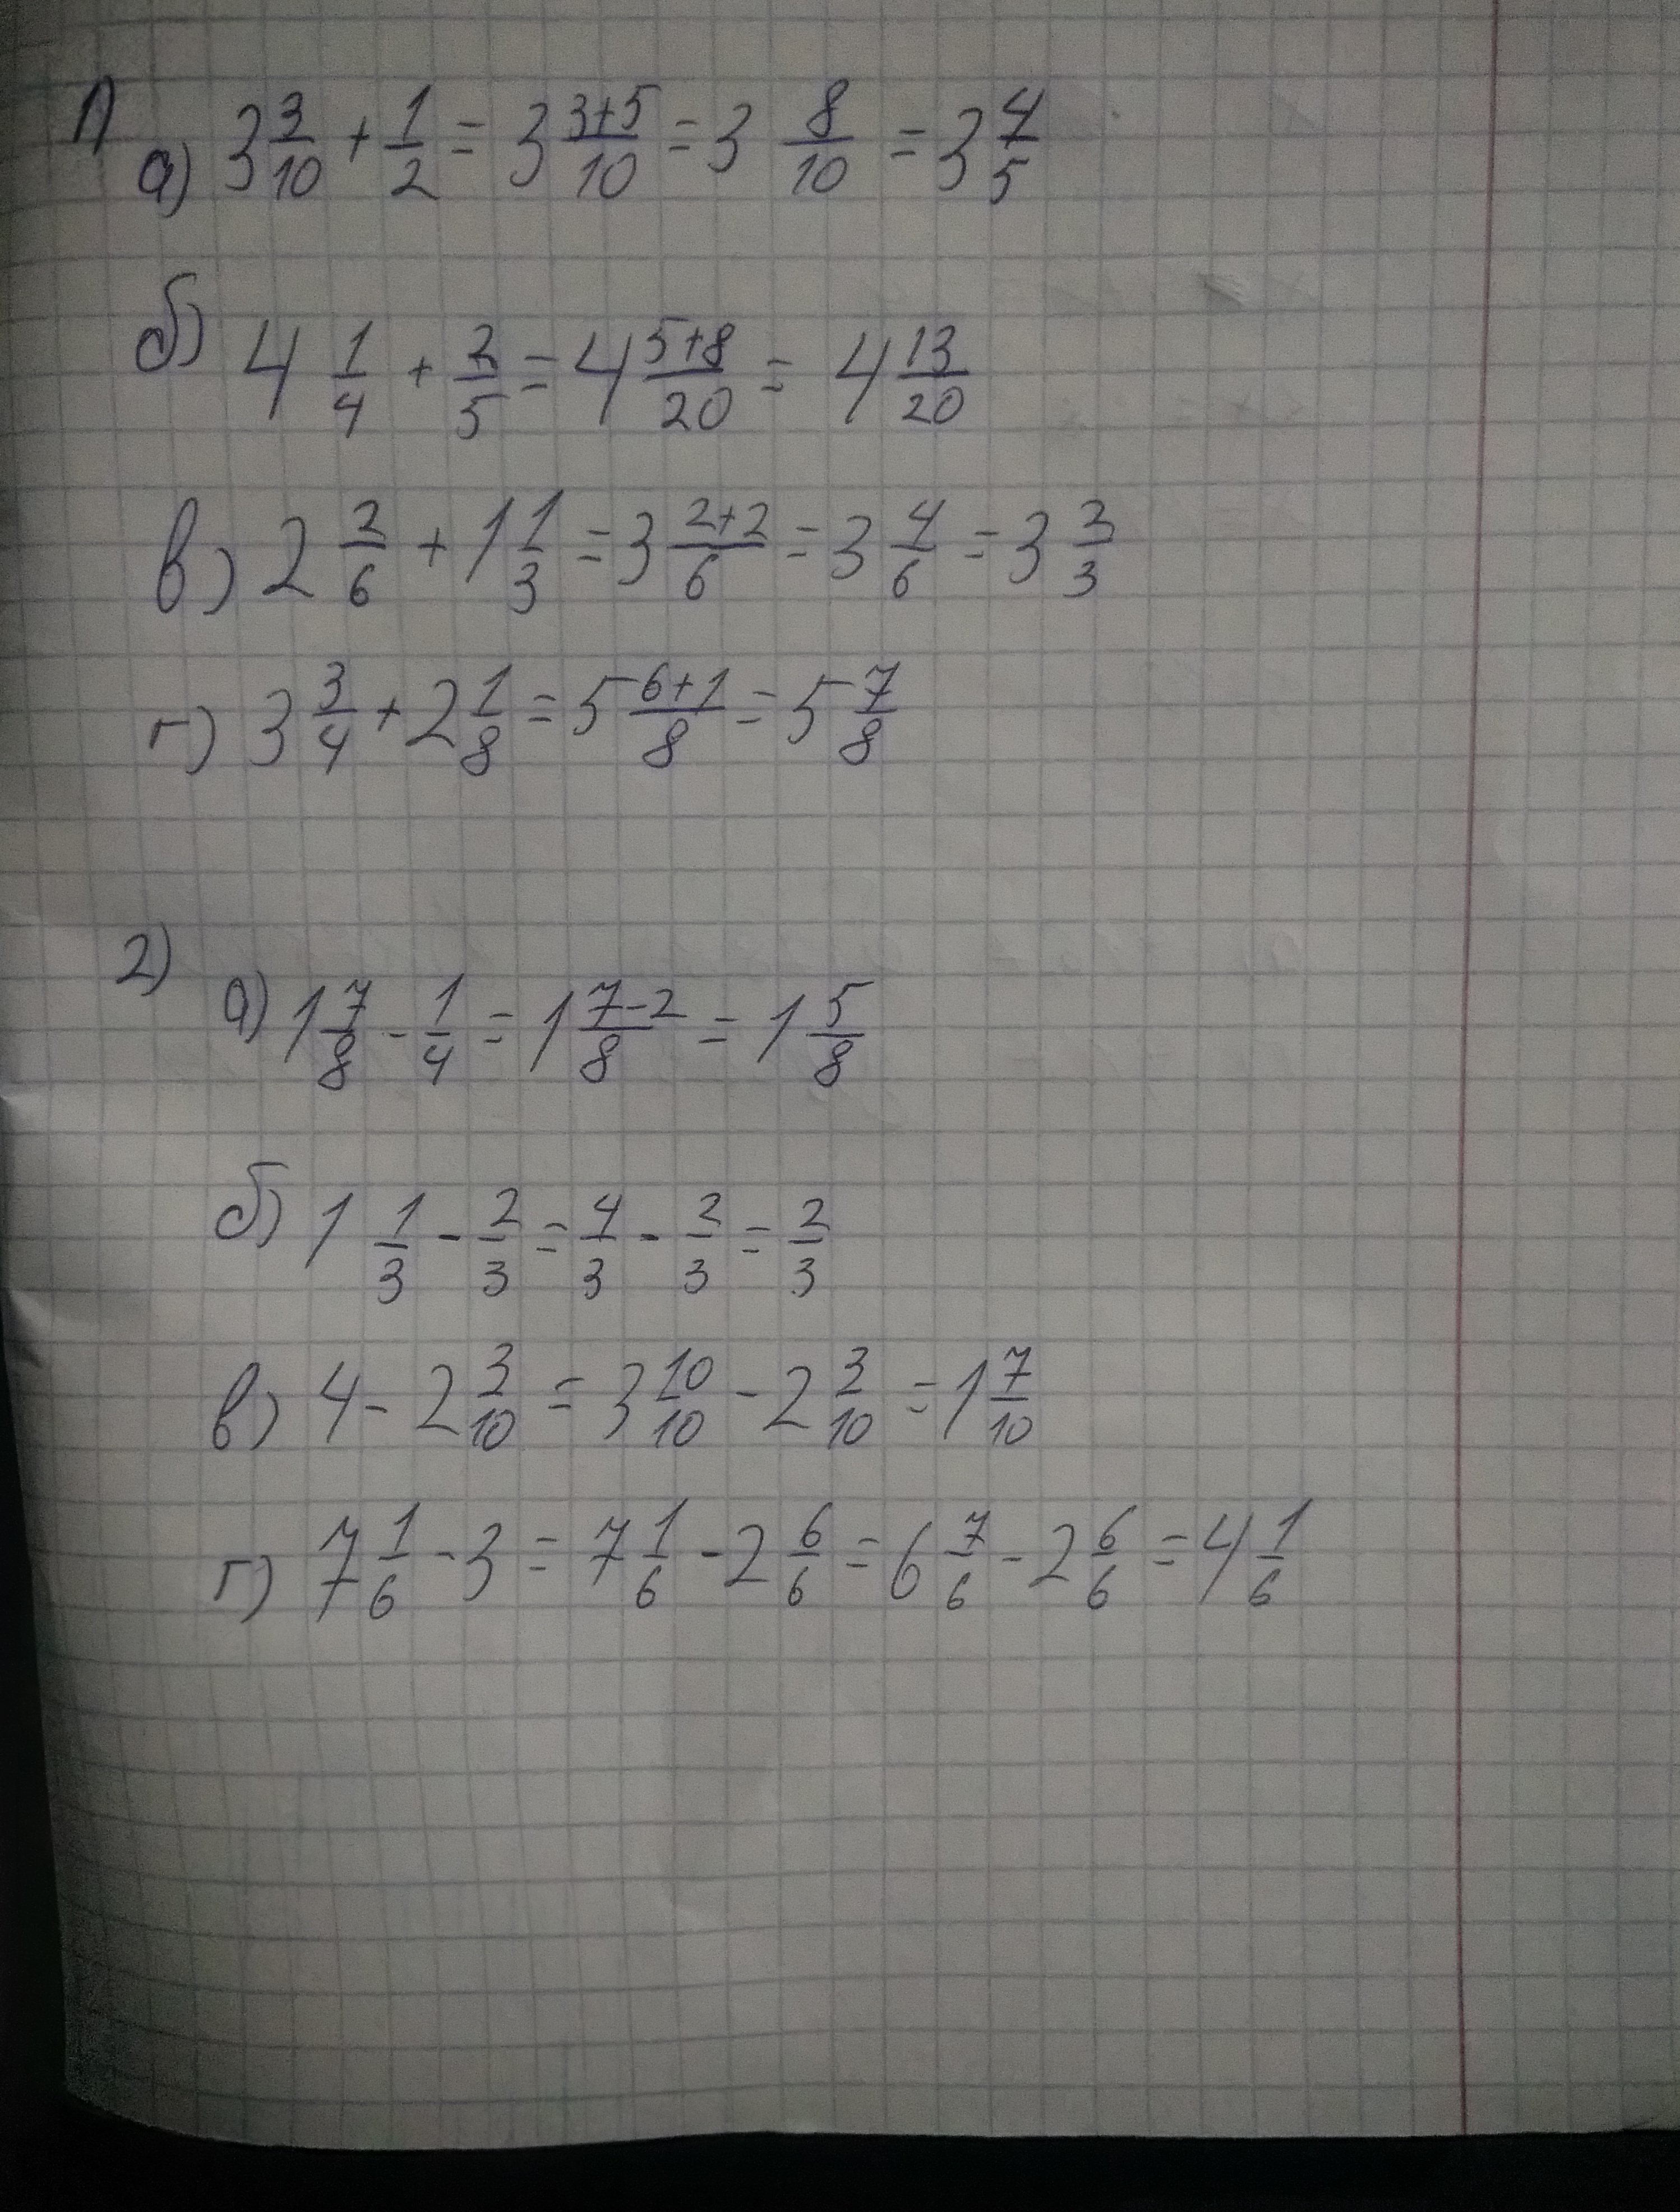 1)
а) 3 3/10 + 1/2 = 3 (3+5)/10 = 3 8/10 = 3 4/5
б) 4 1/4 + 2/5 = 4 (5+8)/20 = 4 13/20
в) 2 2/6 + 1 1/3 = 3 (2+2)/6 = 3 4/6 = 3 2/3
г) 3 3/4 + 2 1/8 = 5 (6+1)/8 = 5 7/8
2)
а) 1 7/8 - 1/4 = 1 (7-2)/8 = 1 5/8
б) 1 1/3 - 2/3 = 4/3 - 2/3 = 2/3
в) 4 - 2 3/10 = 3 10/10 - 2 3/10 = 1 7/10
г) 7 1/6 - 3 = 7 1/6 - 2 6/6 = 6 7/6 - 2 6/6 = 4 1/6